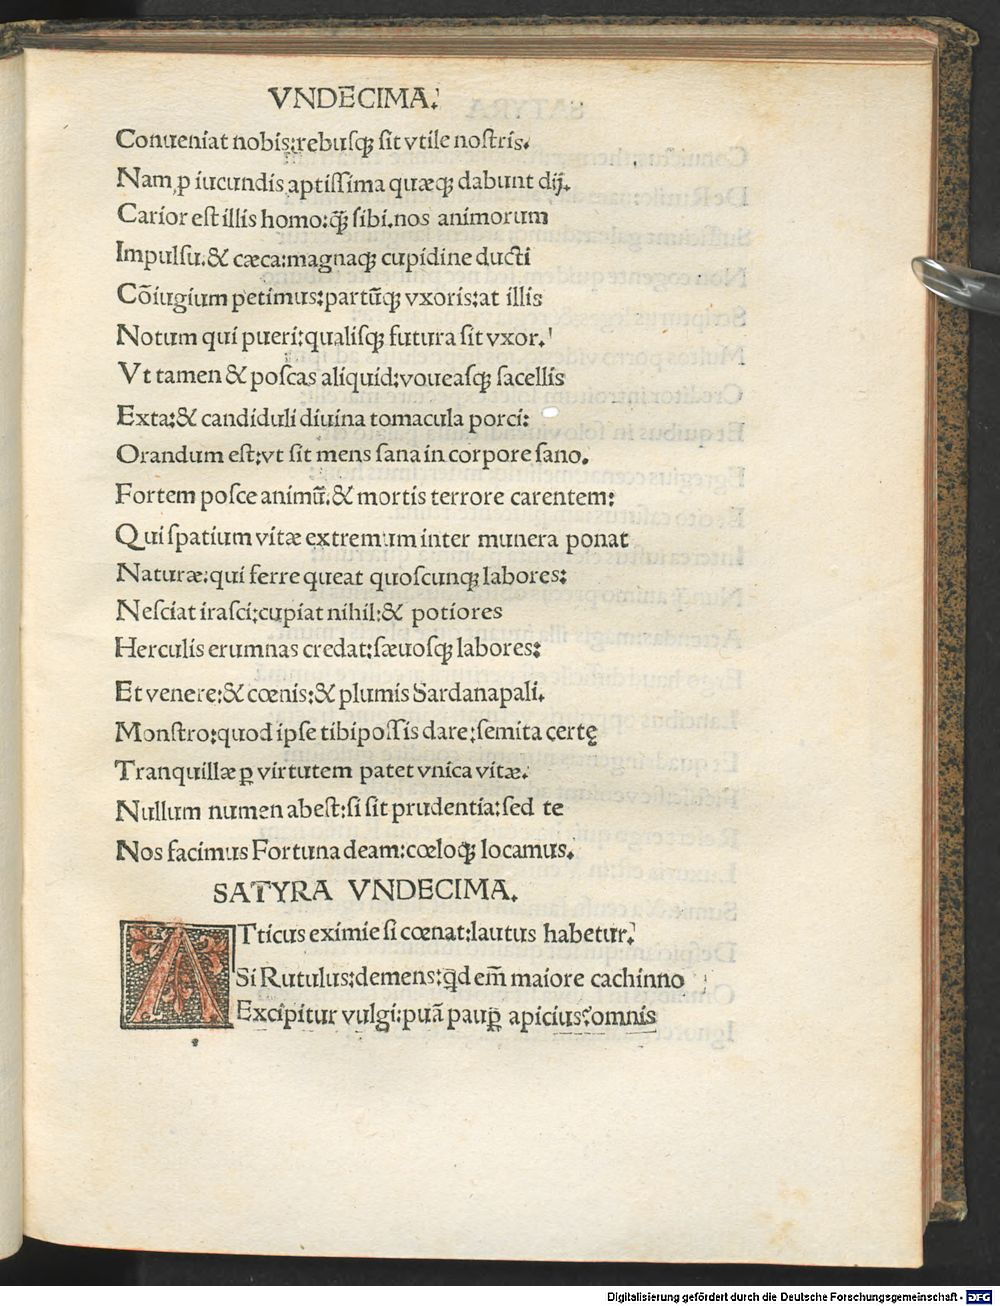 VNDECIMA.
Conueniat nobis:rebusq; sit vtile nostris.
Nam ꝓ iucundis aptissima quæq; dabunt dij.
Carior est illis homo:q̃ sibi.nos animorum
Impulsu.& cæca:magnaq; cupidine ducti
Cõiugium petimus:partũq; vxoris:at illis
Notum qui pueri:qualisq; futura sit vxor.
Vt tamen & poscas aliquid:voueasq; sacellis
Exta:& candiduli diuina tomacula porci:
Orandum est:vt sit mens sana in corpore sano.
Fortem posce animũ.& mortis terrore carentem:
Qui spatium vitæ extremum inter munera ponat
Naturæ:qui ferre queat quoscunq; labores:
Nesciat irasci:cupiat nihil:& potiores
Herculis erumnas credat:sæuosq; labores:
Et venere:& cœnis:& plumis Sardanapali.
Monstro:quod ipse tibi possis dare:semita certę
Tranquillæ ꝑ virtutem patet vnica vitæ.
Nullum numen abest:si sit prudentia:sed te
Nos facimus Fortuna deam:cœloq; locamus.
SATYRA VNDECIMA.
ATticus eximie si cœnat:lautus habetur.
Si Rutulus:demens:qd em̃ maiore cachinno
Excipitur vulgi:quã paup̃ apicius?omnis
Digitalisierung gefördert durch die Deutsche Forschungsgemeinschaft - DFG